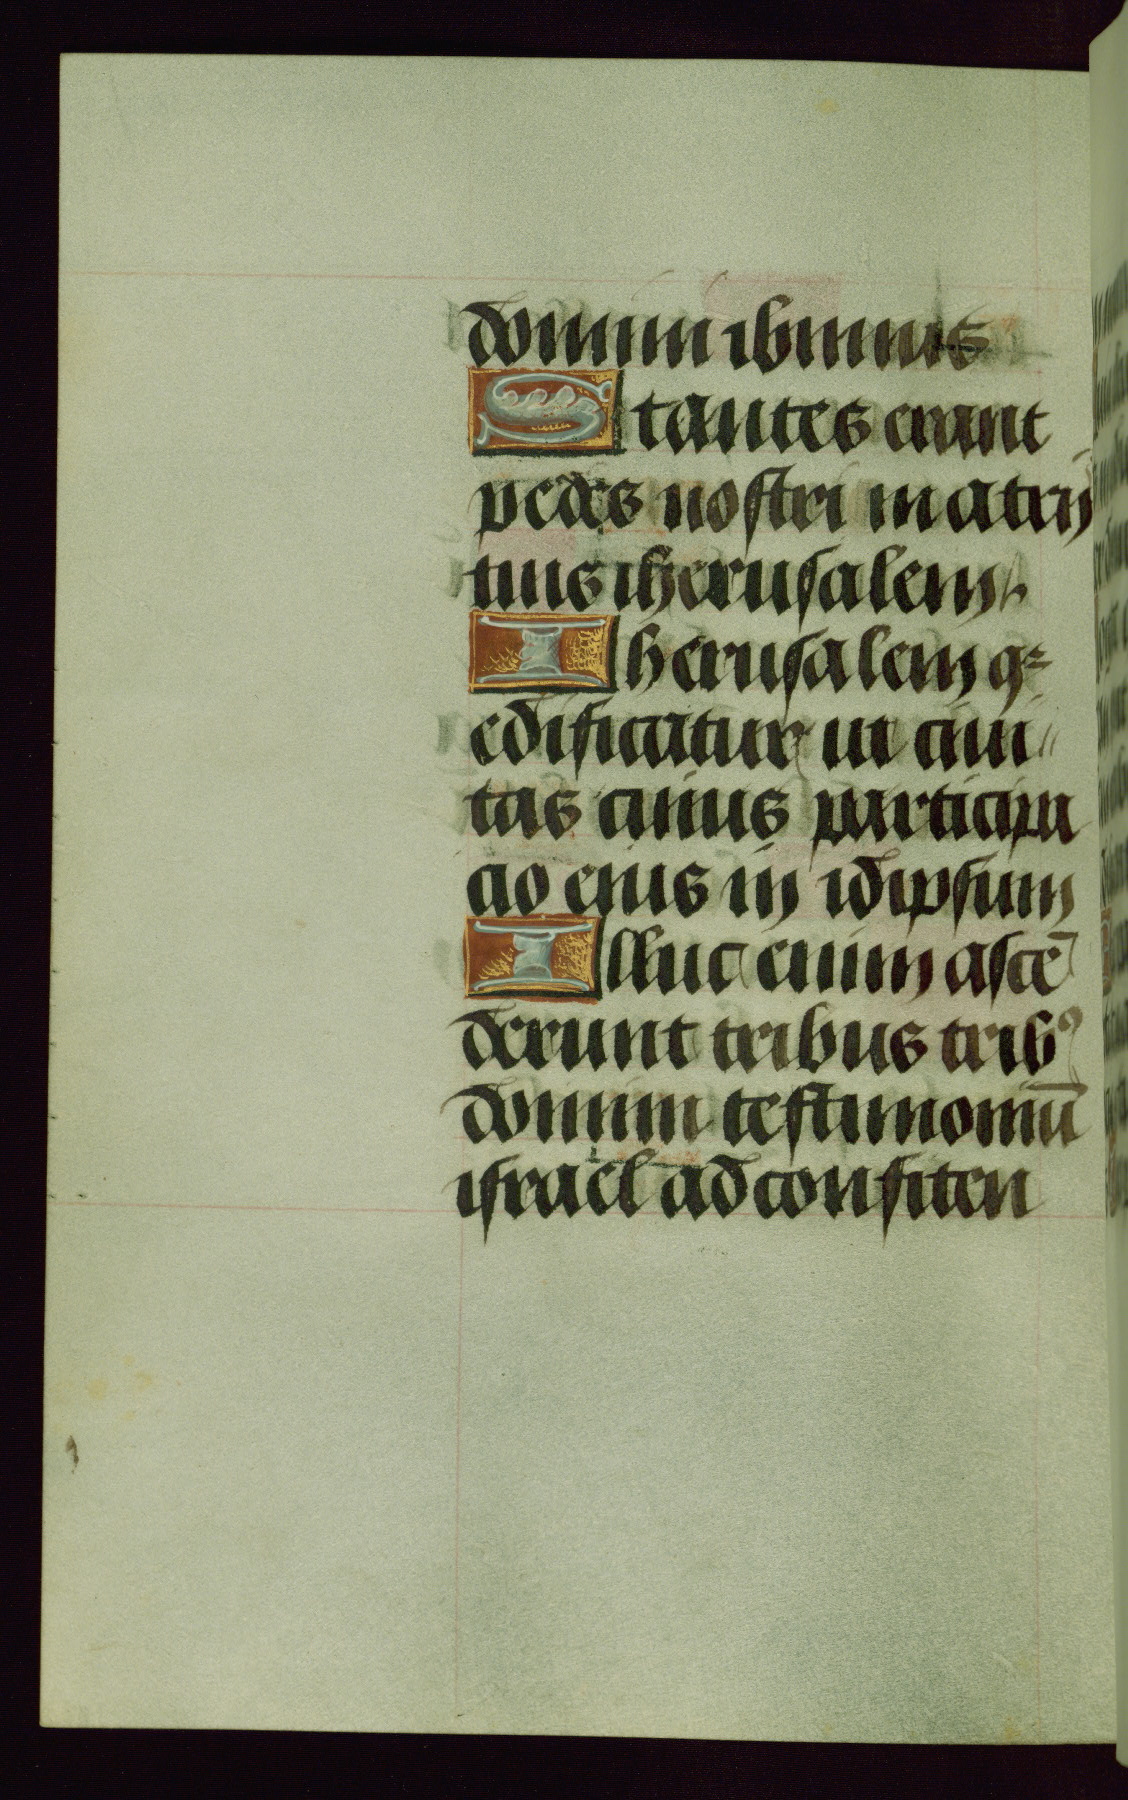 domini ibimus
Stantes erant
pedes nostri in atrijs
tuis iherusalem
Iherusalem q
edificatur ut ciui
tas cuius participa
cio eius in idipsum
Illuc enim ascē
derunt tribus trib⁹
domini testimoniū
israel ad confiten